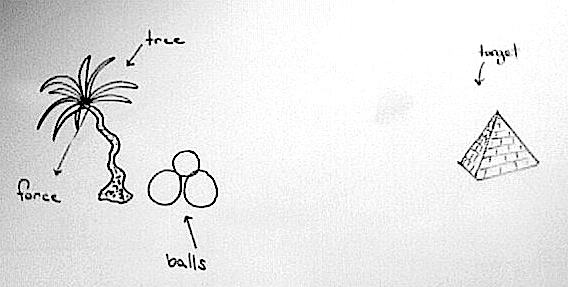 tree
target
force
balls